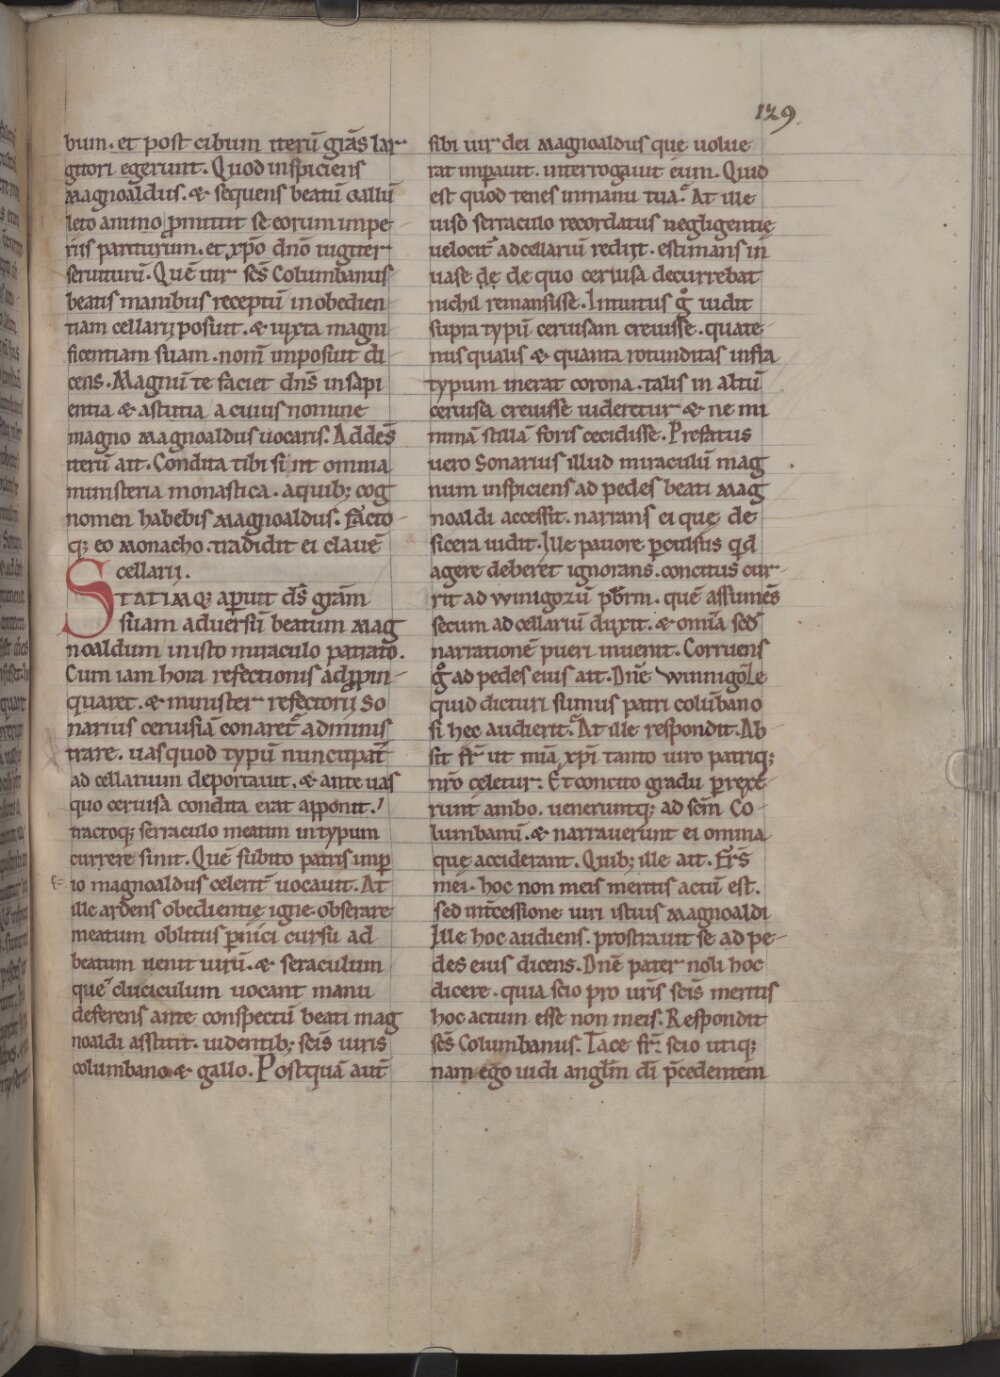 129
bum. et post cibum iterū grās lar
gitori egerunt. Quod inspiciens
Magnoaldus. & sequens beatū Gallū
leto animo promittit se eorum impe
riis pariturum. et xp̄o dn̄o iugiter
seruiturū. Quē uir scs̄ Columbanus
beatis manibus receptū in obedien
tiam cellarij posuit. & iuxta magni
ficentiam suam. nom̄ imposuit di
cens. Magnū te faciet dn̄s in sapi
entia & astutia a cuius nomine
magno magnoaldus uocaris. Addes̄
iterū ait. Condita tibi sint omnia
ministeria monastica. a quib; cog
nomen habebis magnoaldus. Facto
q; eo monacho. tradidit ei clauē
cellarij.
STATIMQ; aperuit ds̄ grām
suam aduersū beatum mag
noaldum in isto miraculo patrato.
Cum iam hora refectionis adpropin
quaret. & minister refectorij So
narius ceruisiā conaret̄ adminis
trare. uas quod typū nuncupat̄
ad cellarium deportauit. & ante uas
quo ceruisa condita erat apponit.
tractoq; serraculo meatim in typum
currere sinit. Quē subito patris imp
io magnoaldus celerit̄ uocauit. At
ille ardens obedientię igne obserare
meatum oblitus p̄nici cursu ad
beatum uenit uirū. & seraculum
que cluciculum uocant manu
deferens ante conspectū beati mag
noaldi asstitit. uidentib; scīs uiris
columbano & gallo. Postquā aut̄
sibi uir dei magnoaldus quę uolue
rat imp̄auit. interrogauit eum. Quid
est quod tenes in manu tua? At ille
uiso serraculo recordatus negligentię
uelocit̄ ad cellariū redijt. estimans in
uase de de quo ceruisa decurrebat
nichil remansisse. Intuitus g̊ uidit
supra typū ceruisam creuisse. quate
nus qualis & quanta rotunditas infra
typum inerat corona. talis in altū
ceruisa creuisse uideretur & ne mi
nimā stillā foris cecidisse. Prefatus
uero Sonarius illud miraculū mag
num inspiciens ad pedes beati Mag
noaldi accessit. narrans ei quę de
sicera uidit. Ille pauore p̄culsus qd̄
agere deberet ignorans. concitus cur
rit ad Winigozū pbr̄m. quē assumēs
secum ad cellariū duxit. & omīa scd̄
narrationē pueri inuenit. Corruens
g̊ ad pedes eius ait. Dn̄e Winnigole
quid dicturi sumus patri colūbano
si hec audierit? At ille respondit. Ab
sit fr̄ ut mīa xp̄i tanto uiro patriq;
nr̄o celetur. Et concito gradu p̄rexe
runt ambo. ueneruntq; ad scm̄ Co
lumbanū. & narrauerunt ei omnia
quę acciderant. Quib; ille ait. Fr̄s
mei. hoc non meis meritis actū est.
sed int̄cessione uiri istius magnoaldi
Ille hoc audiens. prostrauit se ad pe
des eius dicens. Dn̄e pater noli hoc
dicere. quia scio pro ur̄is scīs meritis
hoc actum esse non meis. Respondit
scs̄ Columbanus. Tace fr̄. scio utiq;
nam ego uidi angl̄m dī p̄cedentem